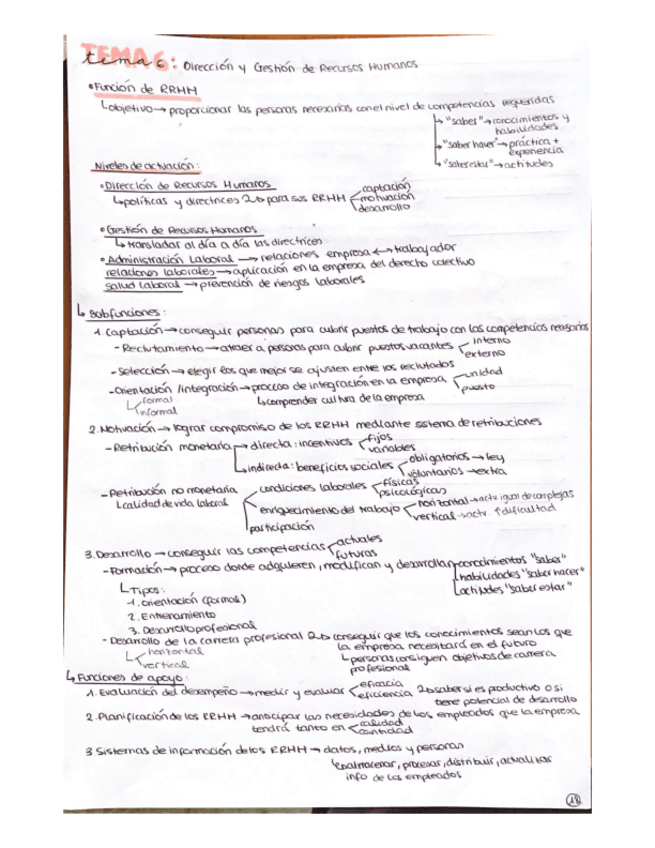 TEMA 6: Dirección y Gestión de Recursos Humanos
• Función de RRHH
↳ objetivo → proporcionar las personas necesarias con el nivel de competencias requeridas
↳ "saber" → conocimientos y
habilidades
↳ "saber hacer" → práctica +
experiencia
↳ "saber estar" → actitudes
Niveles de actuación:
• Dirección de Recursos Humanos
↳ políticas y directrices para sus RRHH
captación
motivación
desarrollo
• Gestión de Recursos Humanos
↳ transladar al día a día las directrices
• Administración Laboral → relaciones empresa ↔ trabajador
relaciones laborales → aplicación en la empresa del derecho colectivo
salud laboral → prevención de riesgos laborales
↳ Subfunciones:
1. Captación → conseguir personas para cubrir puestos de trabajo con las competencias necesarias
- Reclutamiento → atraer a personas para cubrir puestos vacantes
interno
externo
- Selección → elegir los que mejor se ajusten entre los reclutados
- Orientación / integración → proceso de integración en la empresa
unidad
puesto
formal
informal
↳ comprender cultura de la empresa
2. Motivación → lograr compromiso de los RRHH mediante sistema de retribuciones
- Retribución monetaria → directa: incentivos
fijos
variables
↳ indirecta: beneficios sociales
obligatorios → ley
voluntarios → extra
- Retribución no monetaria
calidad de vida laboral
condiciones laborales
físicas
psicológicas
enriquecimiento del trabajo
horizontal → actv. igual de complejas
vertical → actv. ↑ dificultad
participación
3. Desarrollo → conseguir las competencias
actuales
futuras
- Formación → proceso donde adquieren, modifican y desarrollan
conocimientos "saber"
habilidades "saber hacer"
actitudes "saber estar"
↳ Tipos:
1. orientación (formal)
2. Entrenamiento
3. Desarrollo profesional
- Desarrollo de la carrera profesional conseguir que los conocimientos sean los que
la empresa necesitará en el futuro
horizontal
vertical
↳ personas consiguen objetivos de carrera
profesional
↳ Funciones de apoyo:
1. Evaluación del desempeño → medir y evaluar
eficacia
eficiencia
saber si es productivo o si
tiene potencial de desarrollo
2. Planificación de los RRHH → anticipar las necesidades de los empleados que la empresa
tendrá tanto en
calidad
cantidad
3 Sistemas de información de los RRHH → datos, medios y personas
↳ almacenar, procesar, distribuir, actualizar
info de los empleados